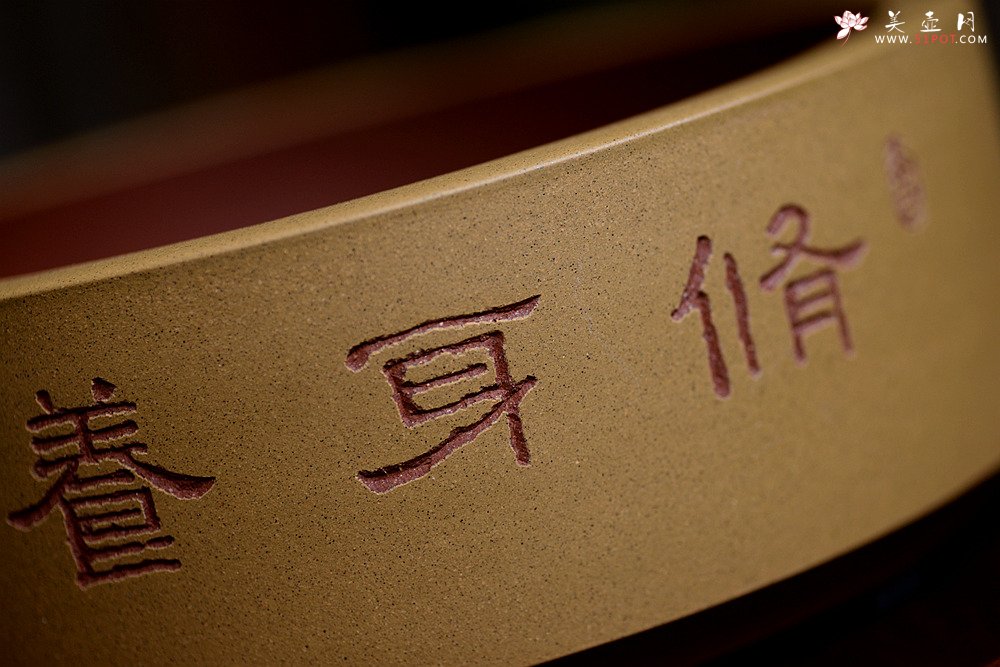 美壶网
WWW.51POT.COM
脩身養